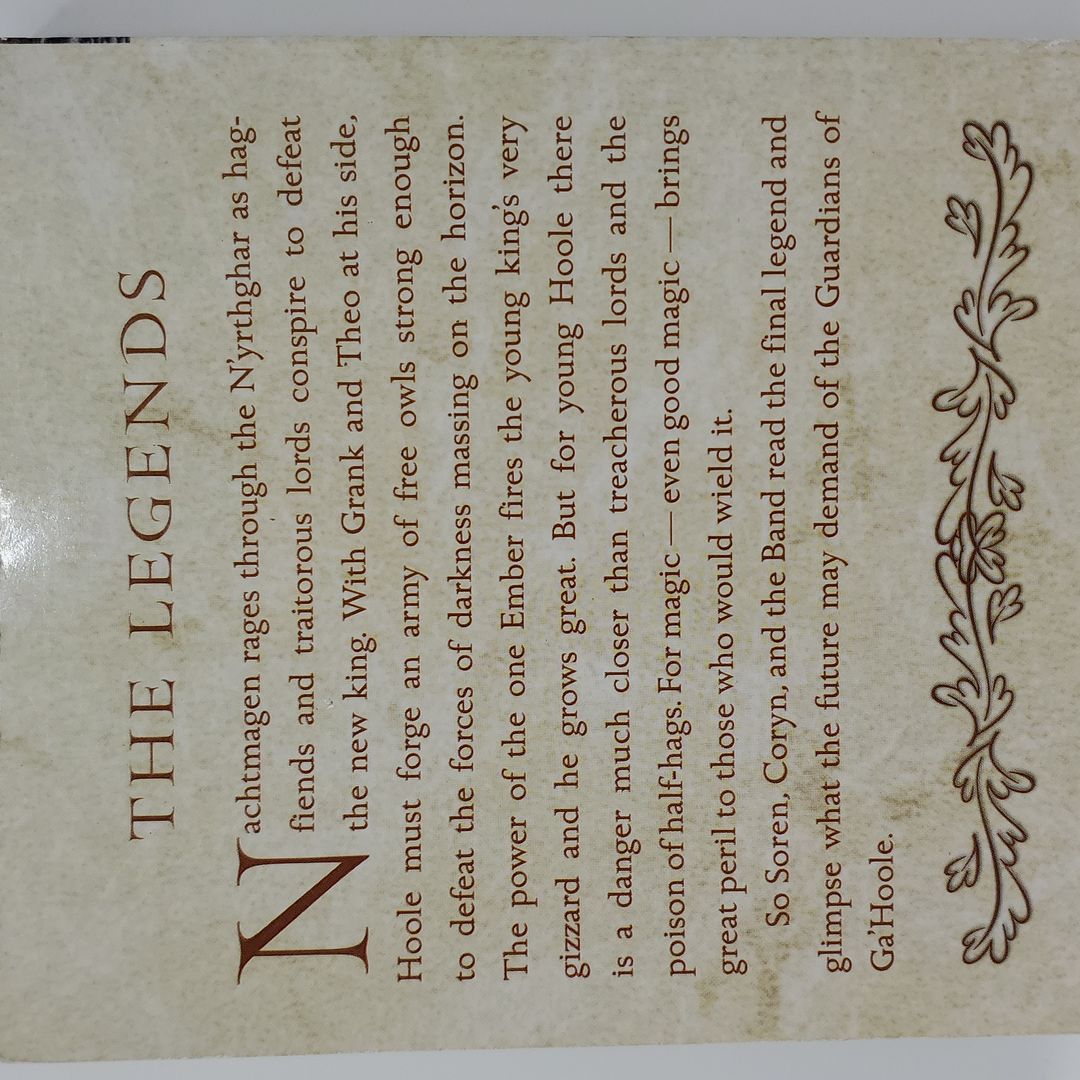 THE LEGENDS
Nachtmagen rages through the N'yrthghar as hag-
fiends and traitorous lords conspire to defeat
the new king. With Grank and Theo at his side,
Hoole must forge an army of free owls strong enough
to defeat the forces of darkness massing on the horizon.
The power of the one Ember fires the young king's very
gizzard and he grows great. But for young Hoole there
is a danger much closer than treacherous lords and the
poison of half-hags. For magic—even good magic—brings
great peril to those who would wield it.
So Soren, Coryn, and the Band read the final legend and
glimpse what the future may demand of the Guardians of
Ga'Hoole.